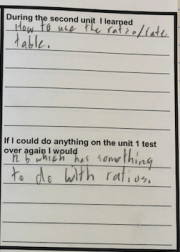 During the second unit I learned
How to use the ratio/rate
table.
If I could do anything on the unit 1 test
over again I would
12 b which has something
to do with ratios.